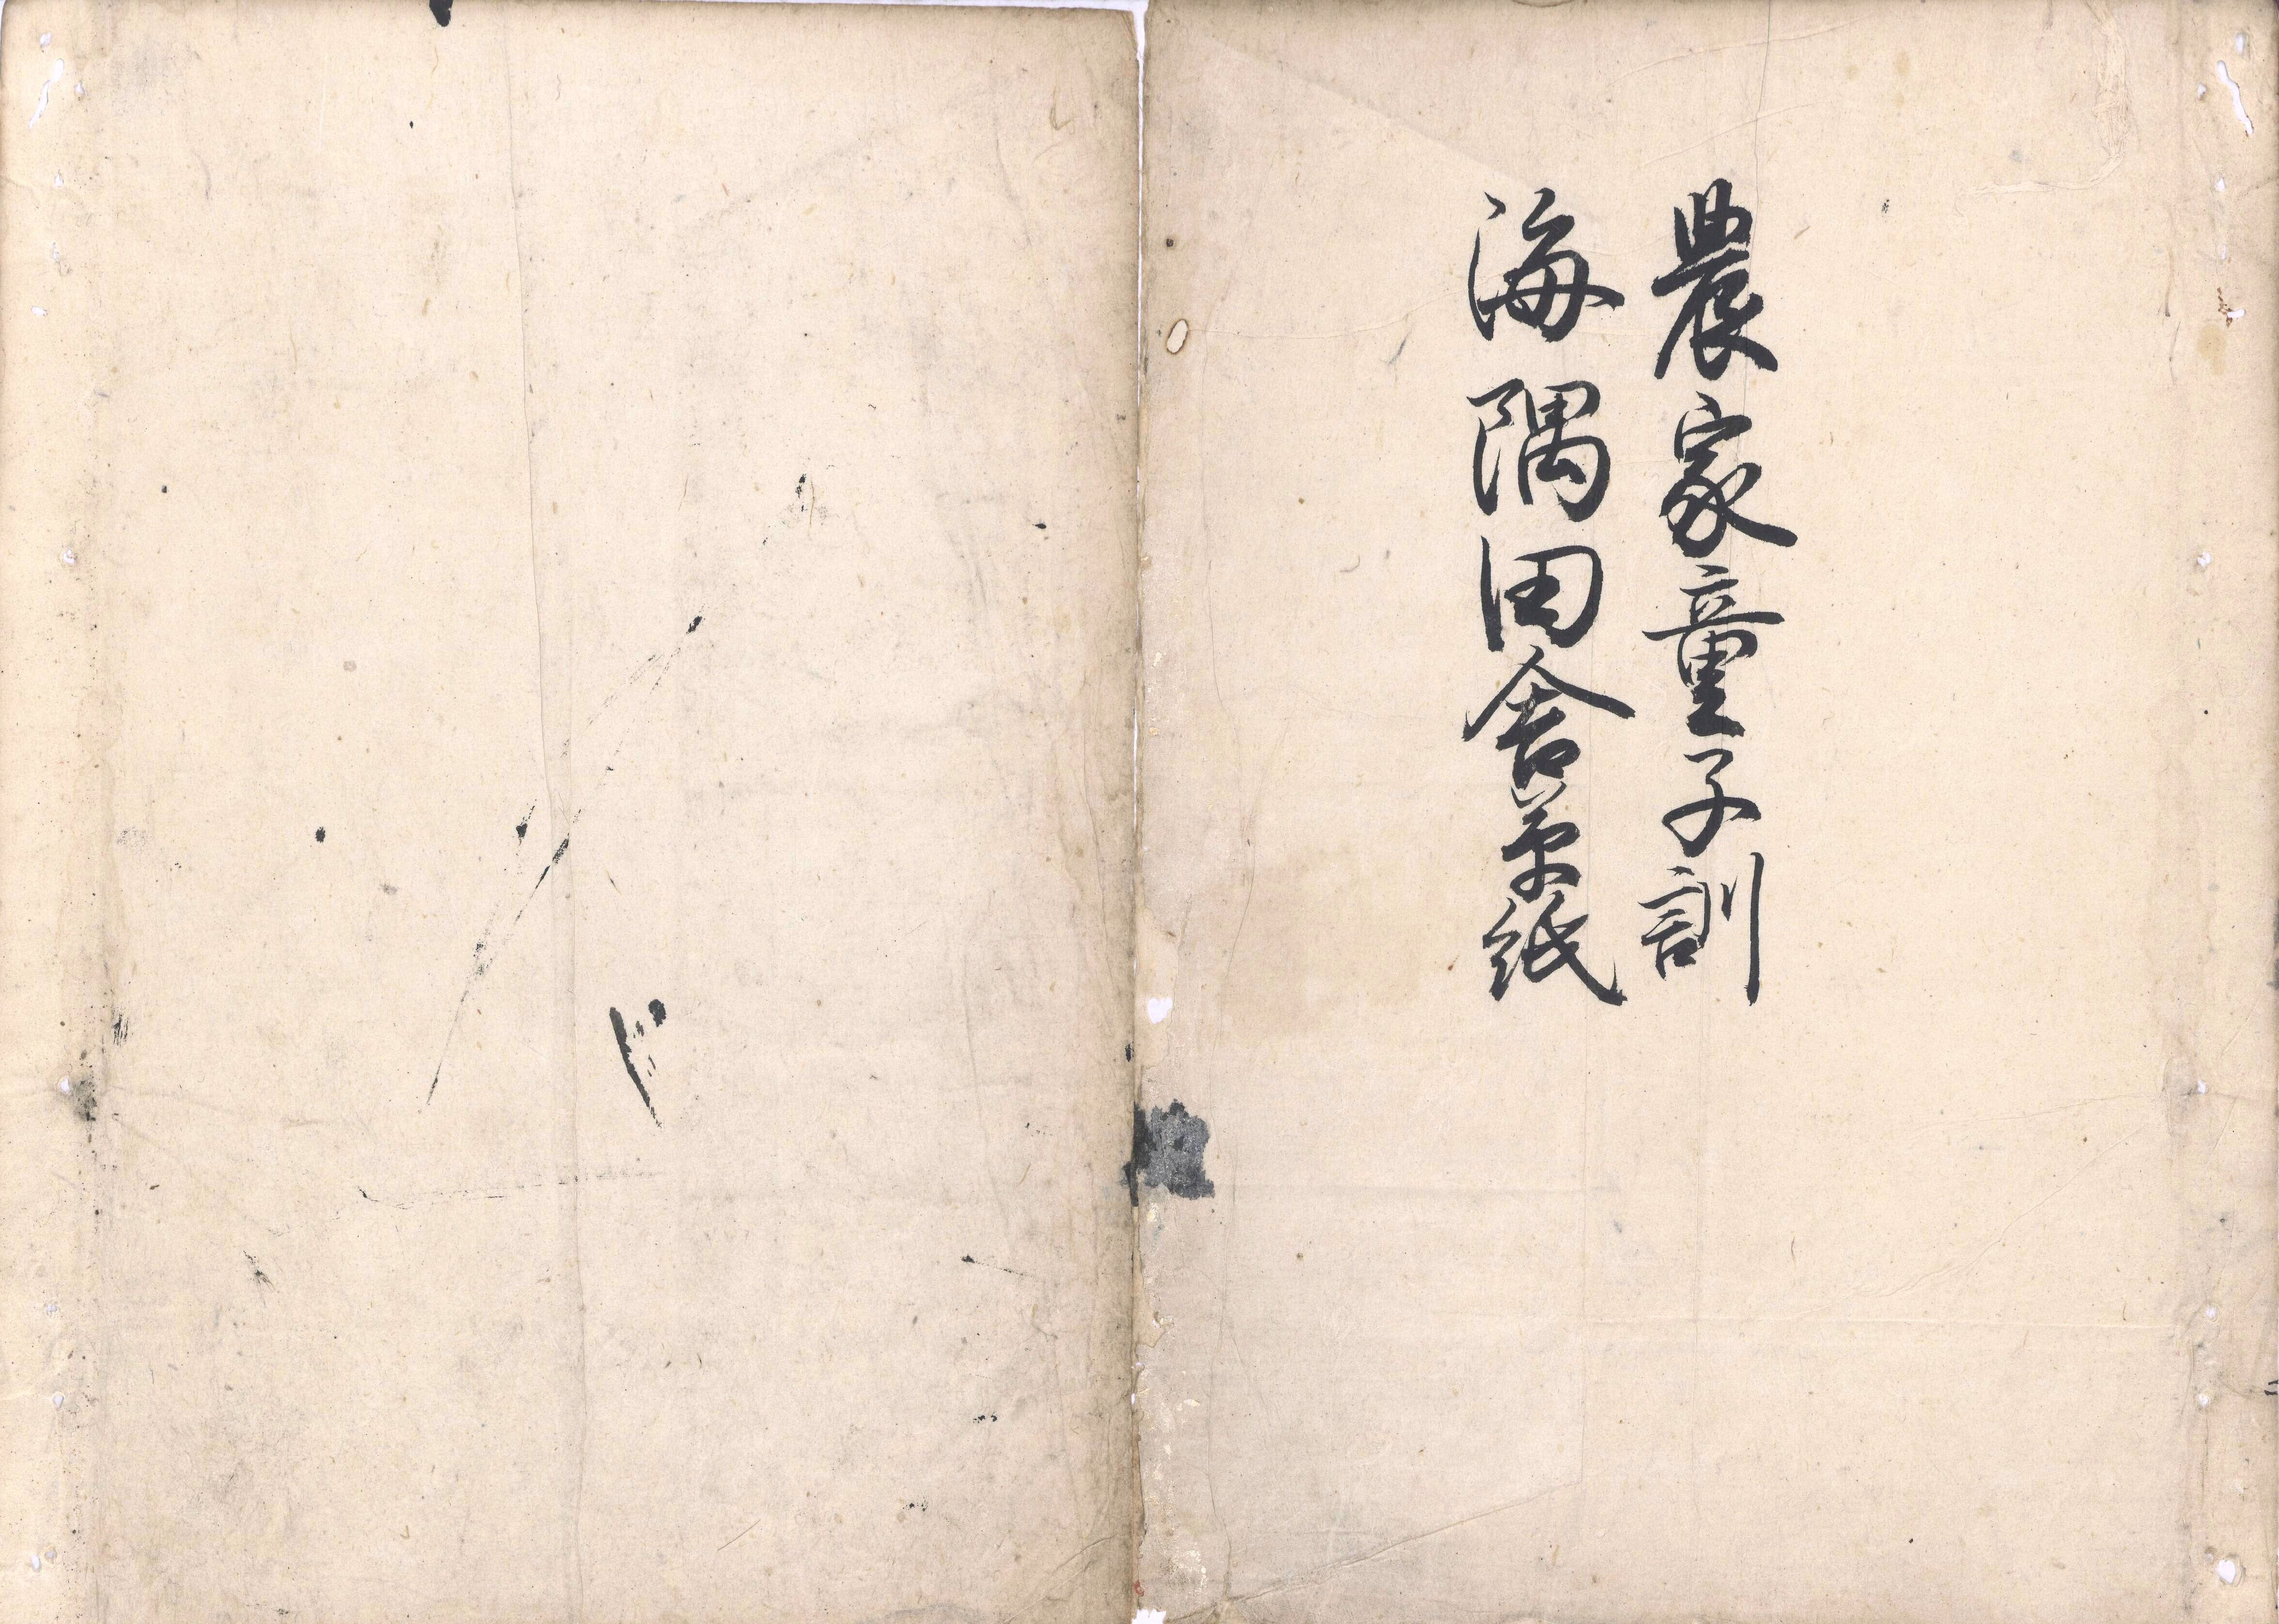 農家童子訓
海隅田舎草紙